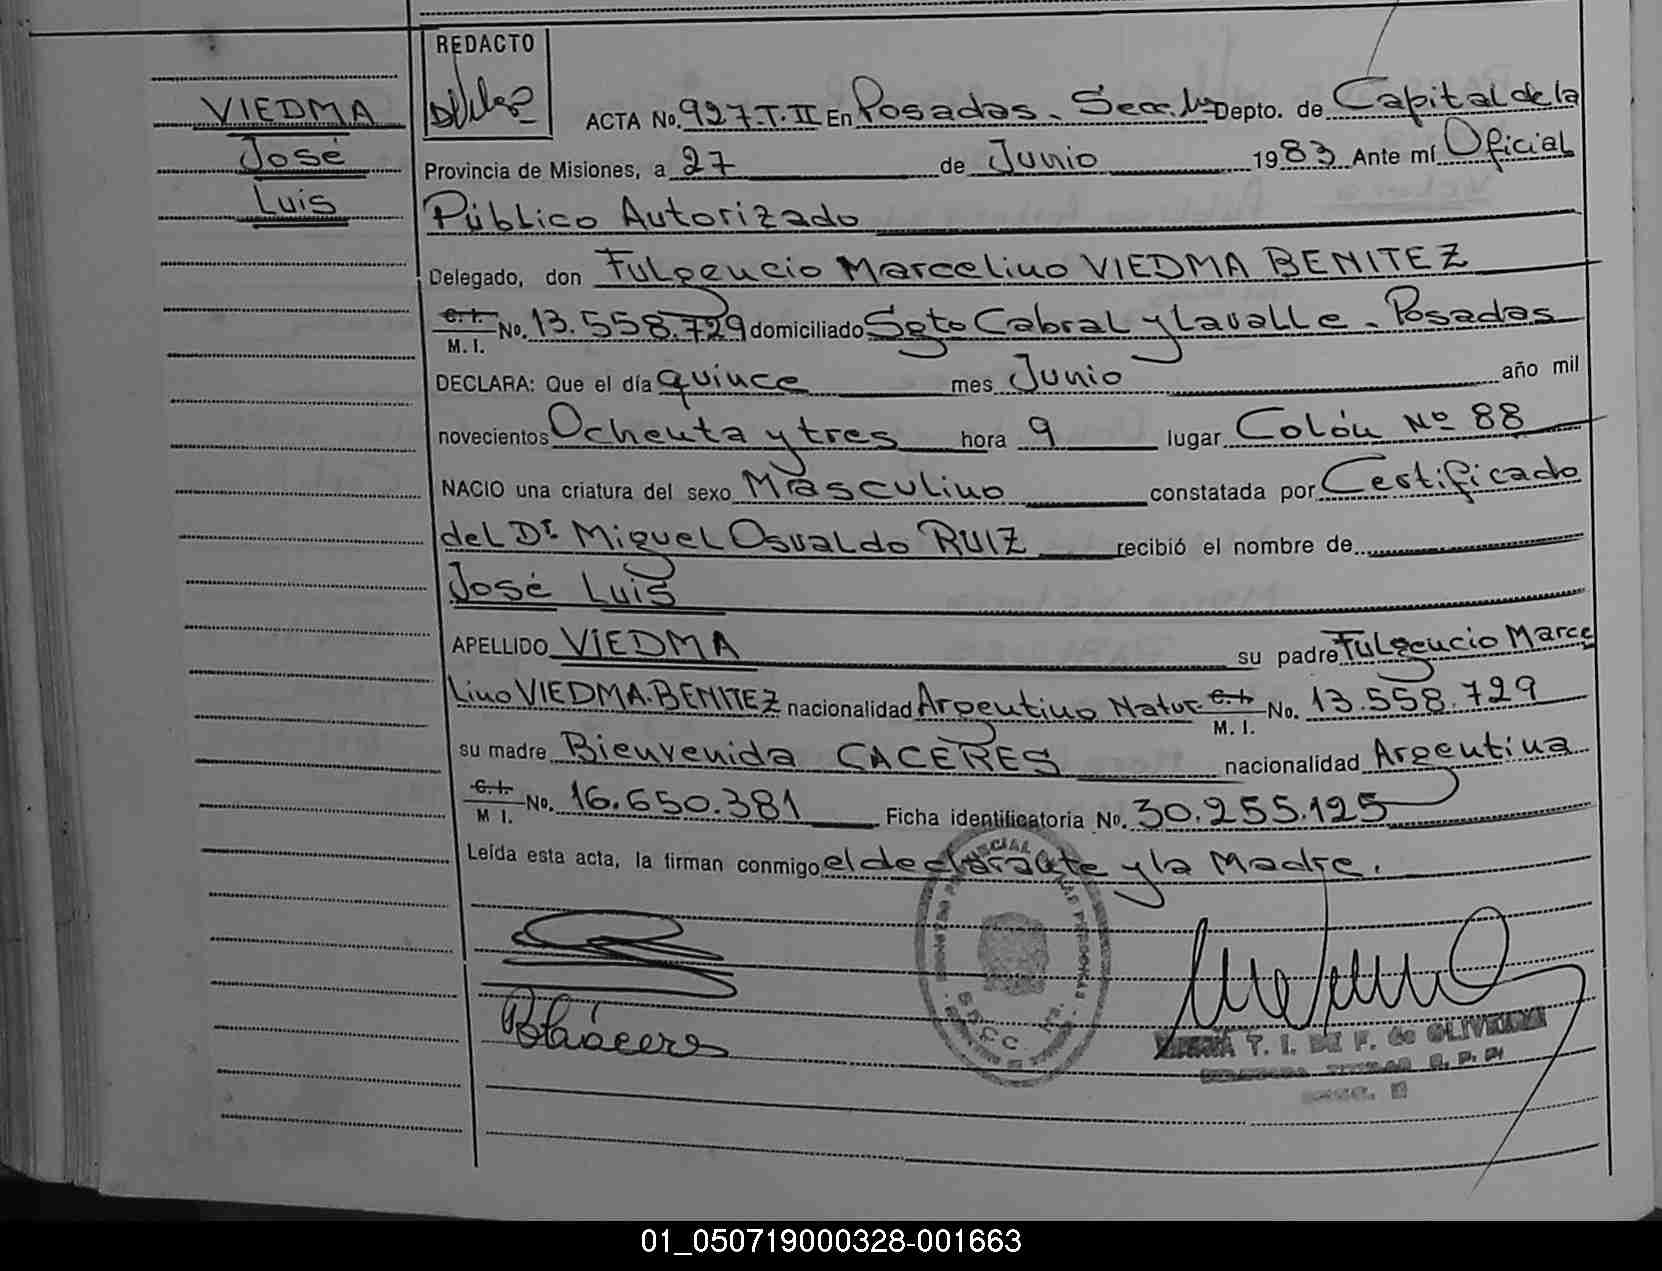 VIEDMA
José
Luis
REDACTO
ACTA No. 927.T.II En Posadas. Secc. 1a Depto. de Capital de la
Provincia de Misiones, a 27 de Junio 1983 Ante mí Oficial
Público Autorizado
Delegado, don Fulgencio Marcelino VIEDMA BENITEZ
C. I.
M. I. No. 13.558.729 domiciliado Sgto Cabral y Lavalle. Posadas
DECLARA: Que el día quince mes Junio año mil
novecientos Ochenta y tres hora 9 lugar Colón Nº 88
NACIO una criatura del sexo Masculino constatada por Certificado
del Dr. Miguel Osvaldo RUIZ recibió el nombre de
José Luis
APELLIDO VIEDMA su padre Fulgencio Marce
lino VIEDMA.BENITEZ nacionalidad Argentino Natur. C. I.
M. I. No. 13.558.729
su madre Bienvenida CACERES nacionalidad Argentina
C. I.
M I. No. 16.650.381 Ficha identificatoria No. 30.255.125
Leída esta acta, la firman conmigo el declarante y la Madre.
T. I. DE F. de OLIVEIRA
01_050719000328-001663